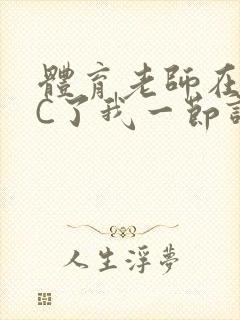 體育老師在
C了我一節
人生浮夢